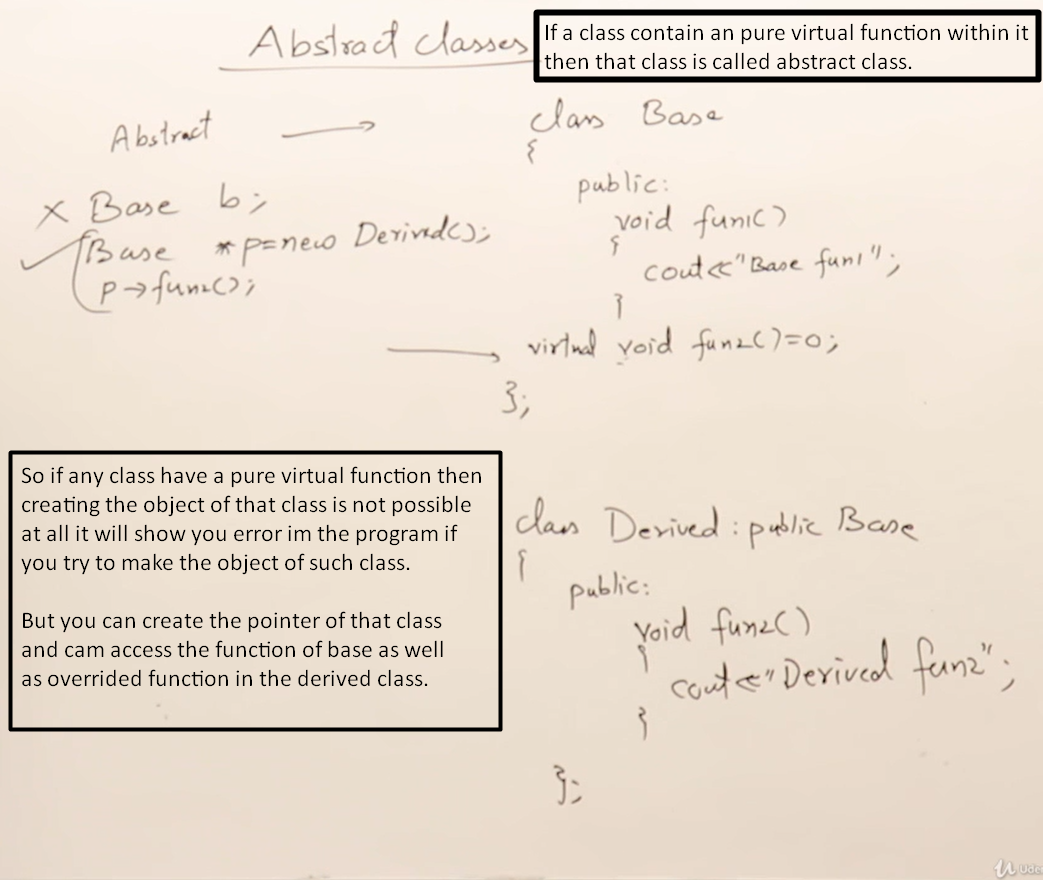 Abstract classes
If a class contain an pure virtual function within it
then that class is called abstract class.
Abstract
X Base b;
Base *p=new Derived();
p→fun2();
class Base
{
public:
void fun1()
{
cout<<"Base fun1";
}
virtual void fun2()=0;
};
So if any class have a pure virtual function then
creating the object of that class is not possible
at all it will show you error im the program if
you try to make the object of such class.
But you can create the pointer of that class
and cam access the function of base as well
as overrided function in the derived class.
class Derived : public Base
{
public:
void fun2()
{
cout<<"Derived fun2";
}
};